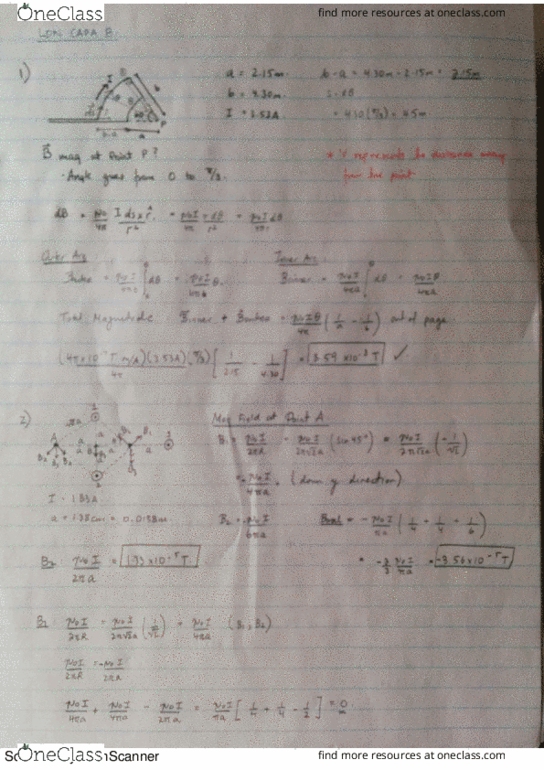 OneClass
find more resources at oneclass.com
LON CAPA B
1)
a = 2.15m
b = 4.30m
I = 3.53A
b-a = 4.30m - 2.15m = 2.15m
= 4.30(π/3) = 4.5m
B mag at Point P?
Angle goes from 0 to π/3.
* 'r' represents the distance away
from the point
dB = μ₀/4π I ds x r̂/r² = μ₀I r dθ/4π r² = μ₀I dθ/4πr
Outer Arc
Inner Arc
= μ₀I/4πb ∫ dθ = μ₀I/4πb θ
Binner = μ₀I/4πa ∫ dθ = μ₀Iθ/4πa
Total Magnitude Binner + = μ₀Iθ/4π (1/a - 1/b) out of page
(4πx10⁻⁷ T m/A)(3.53A)(π/3)/4π [1/2.15 - 1/4.30] = 3.59 x10⁻⁸ T ✓
2)
Mag Field at Point A
B₁ = μ₀I/2πR = μ₀I/2π√2a (sin 45°) = μ₀I/2π√2a (-1/√2)
= -μ₀I/4πa (down y direction)
I = 1.83A
a = 1.38cm = 0.0138m
B₂ = -μ₀I/6πa
= -μ₀I/πa (1/4 + 1/4 + 1/6)
= -2/3 μ₀I/πa = -3.56 x10⁻⁵ T
B₂ μ₀I/2πa = 1.33 x10⁻⁵ T
B₁ μ₀I/2πR = μ₀I/2π√2a (1/√2) = μ₀I/4πa (B₁, B₂)
μ₀I/2πR = -μ₀I/2πa
μ₀I/4πa + μ₀I/4πa - μ₀I/2πa = μ₀I/πa [1/4 + 1/4 - 1/2] = 0
OneClass
Scanner
find more resources at oneclass.com